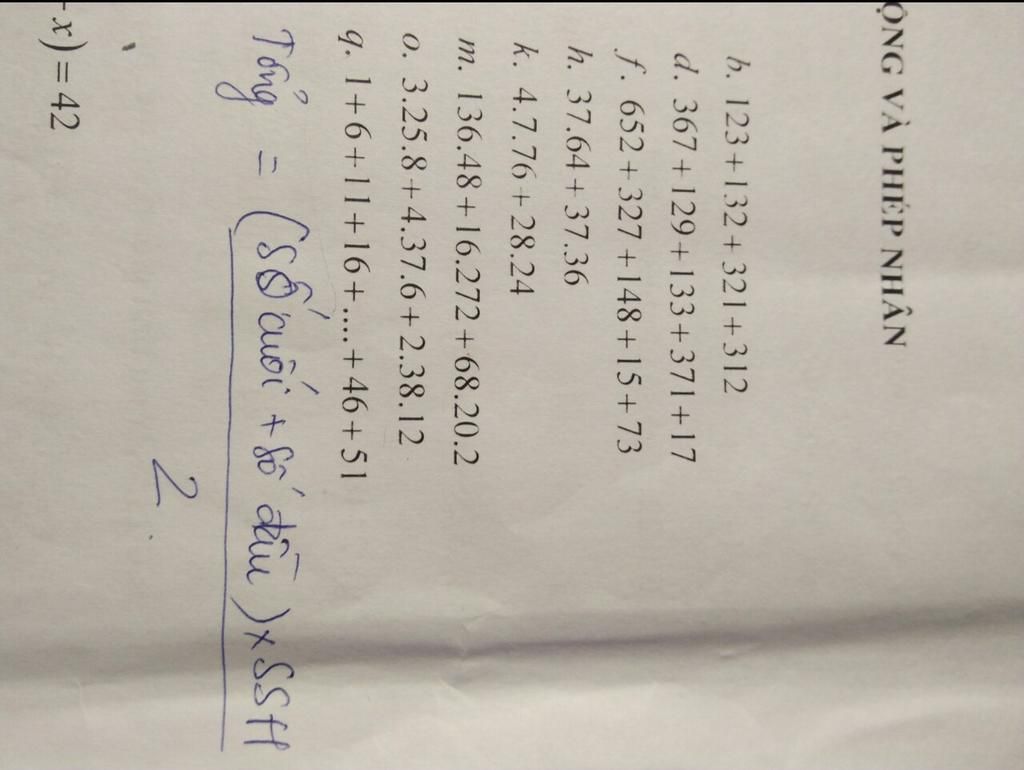 ỘNG VÀ PHÉP NHÂN
b. 123+132+321+312
d. 367+129+133+371+17
f. 652+327+148+15+73
h. 37.64+37.36
k. 4.7.76+28.24
m. 136.48+16.272+68.20.2
o. 3.25.8+4.37.6+2.38.12
q. 1+6+11+16+....+46+51
Tổng = (số cuối + số đầu) x SSH
2
- x) = 42